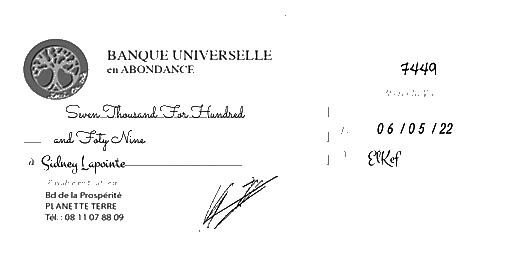 BANQUE UNIVERSELLE
en ABONDANCE
7449
Seven Thousand For Hundred
and Foty Nine
06/05/22
à Sidney Lapointe
ElKef
Bd de la Prospérité
PLANETTE TERRE
Tél. : 08 11 07 88 09